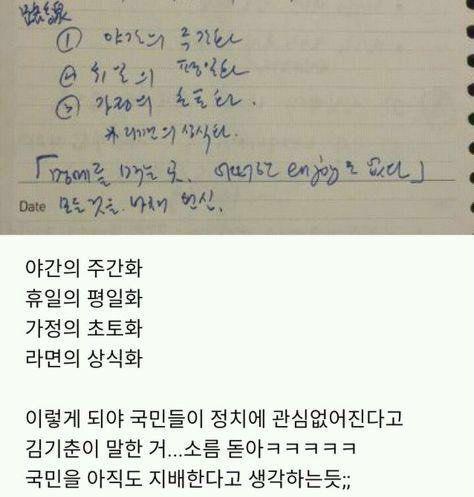 路線
① 야간의 주간화
② 휴일의 평일화
③ 가정의 초토화.
*라면의 상식화.
「명예를 먹는 곳. 어떠한 enjoy도 없다」
Date 모든 것을 바쳐 헌신.
야간의 주간화
휴일의 평일화
가정의 초토화
라면의 상식화
이렇게 되야 국민들이 정치에 관심없어진다고
김기춘이 말한 거...소름 돋아ㅋㅋㅋㅋㅋ
국민을 아직도 지배한다고 생각하는듯;;